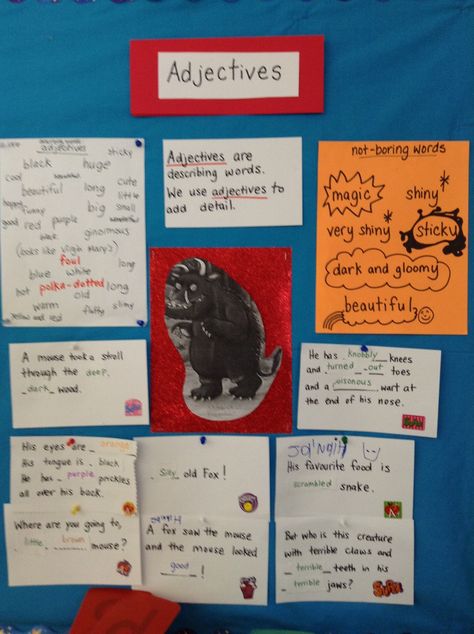 Adjectives
describing words
adjectives
sticky
black huge
cool beautiful long cute
little
happy funny big small
good red purple wonderful
black ginormous
(looks like Virgin Mary?)
foul
blue white long
hot polka-dotted long
old
warm fluffy slimy
yellow and red
Adjectives are
describing words.
We use adjectives to
add detail.
not-boring words
magic shiny
very shiny sticky
dark and gloomy
beautiful
A mouse took a stroll
through the deep,
dark wood.
He has knobbly knees
and turned out toes
and a poisonous wart at
the end of his nose.
His eyes are orange
His tongue is black
He has purple prickles
all over his back.
Silly old Fox!
His favourite food is
scrambled snake.
Where are you going to,
little brown mouse?
A fox saw the mouse
and the mouse looked
good!
But who is this creature
with terrible claws and
terrible teeth in his
terrible jaws?
SUPER